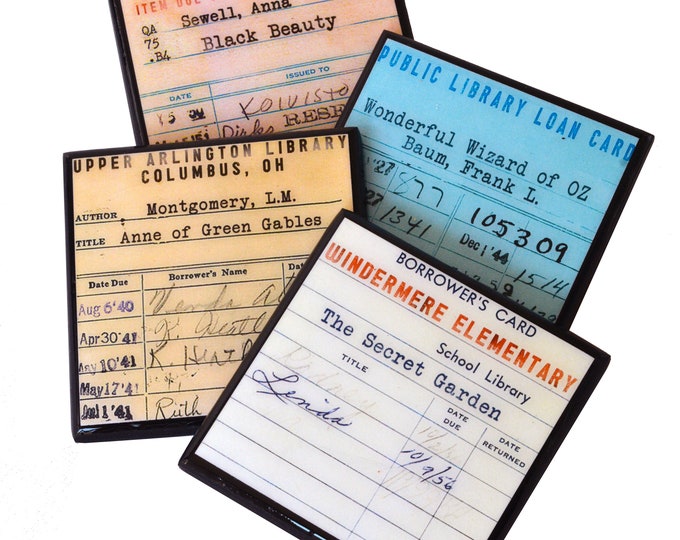 ITEM DUE
Sewell, Anna
QA
75
.B4
Black Beauty
ISSUED TO
DATE
RESE
PUBLIC LIBRARY LOAN CARD
Wonderful Wizard of OZ
Baum, Frank L.
'27 877
105309
1341
Dec 1'44
1514
UPPER ARLINGTON LIBRARY
COLUMBUS, OH
AUTHOR Montgomery, L.M.
TITLE Anne of Green Gables
Date Due Borrower's Name
Aug 6'40
Apr 30'41
10'41 K.
May 17'41
1'41 Ruth
BORROWER'S CARD
WINDERMERE ELEMENTARY
School Library
The Secret Garden
TITLE
DATE DUE
DATE RETURNED
Lenida 10/9/56